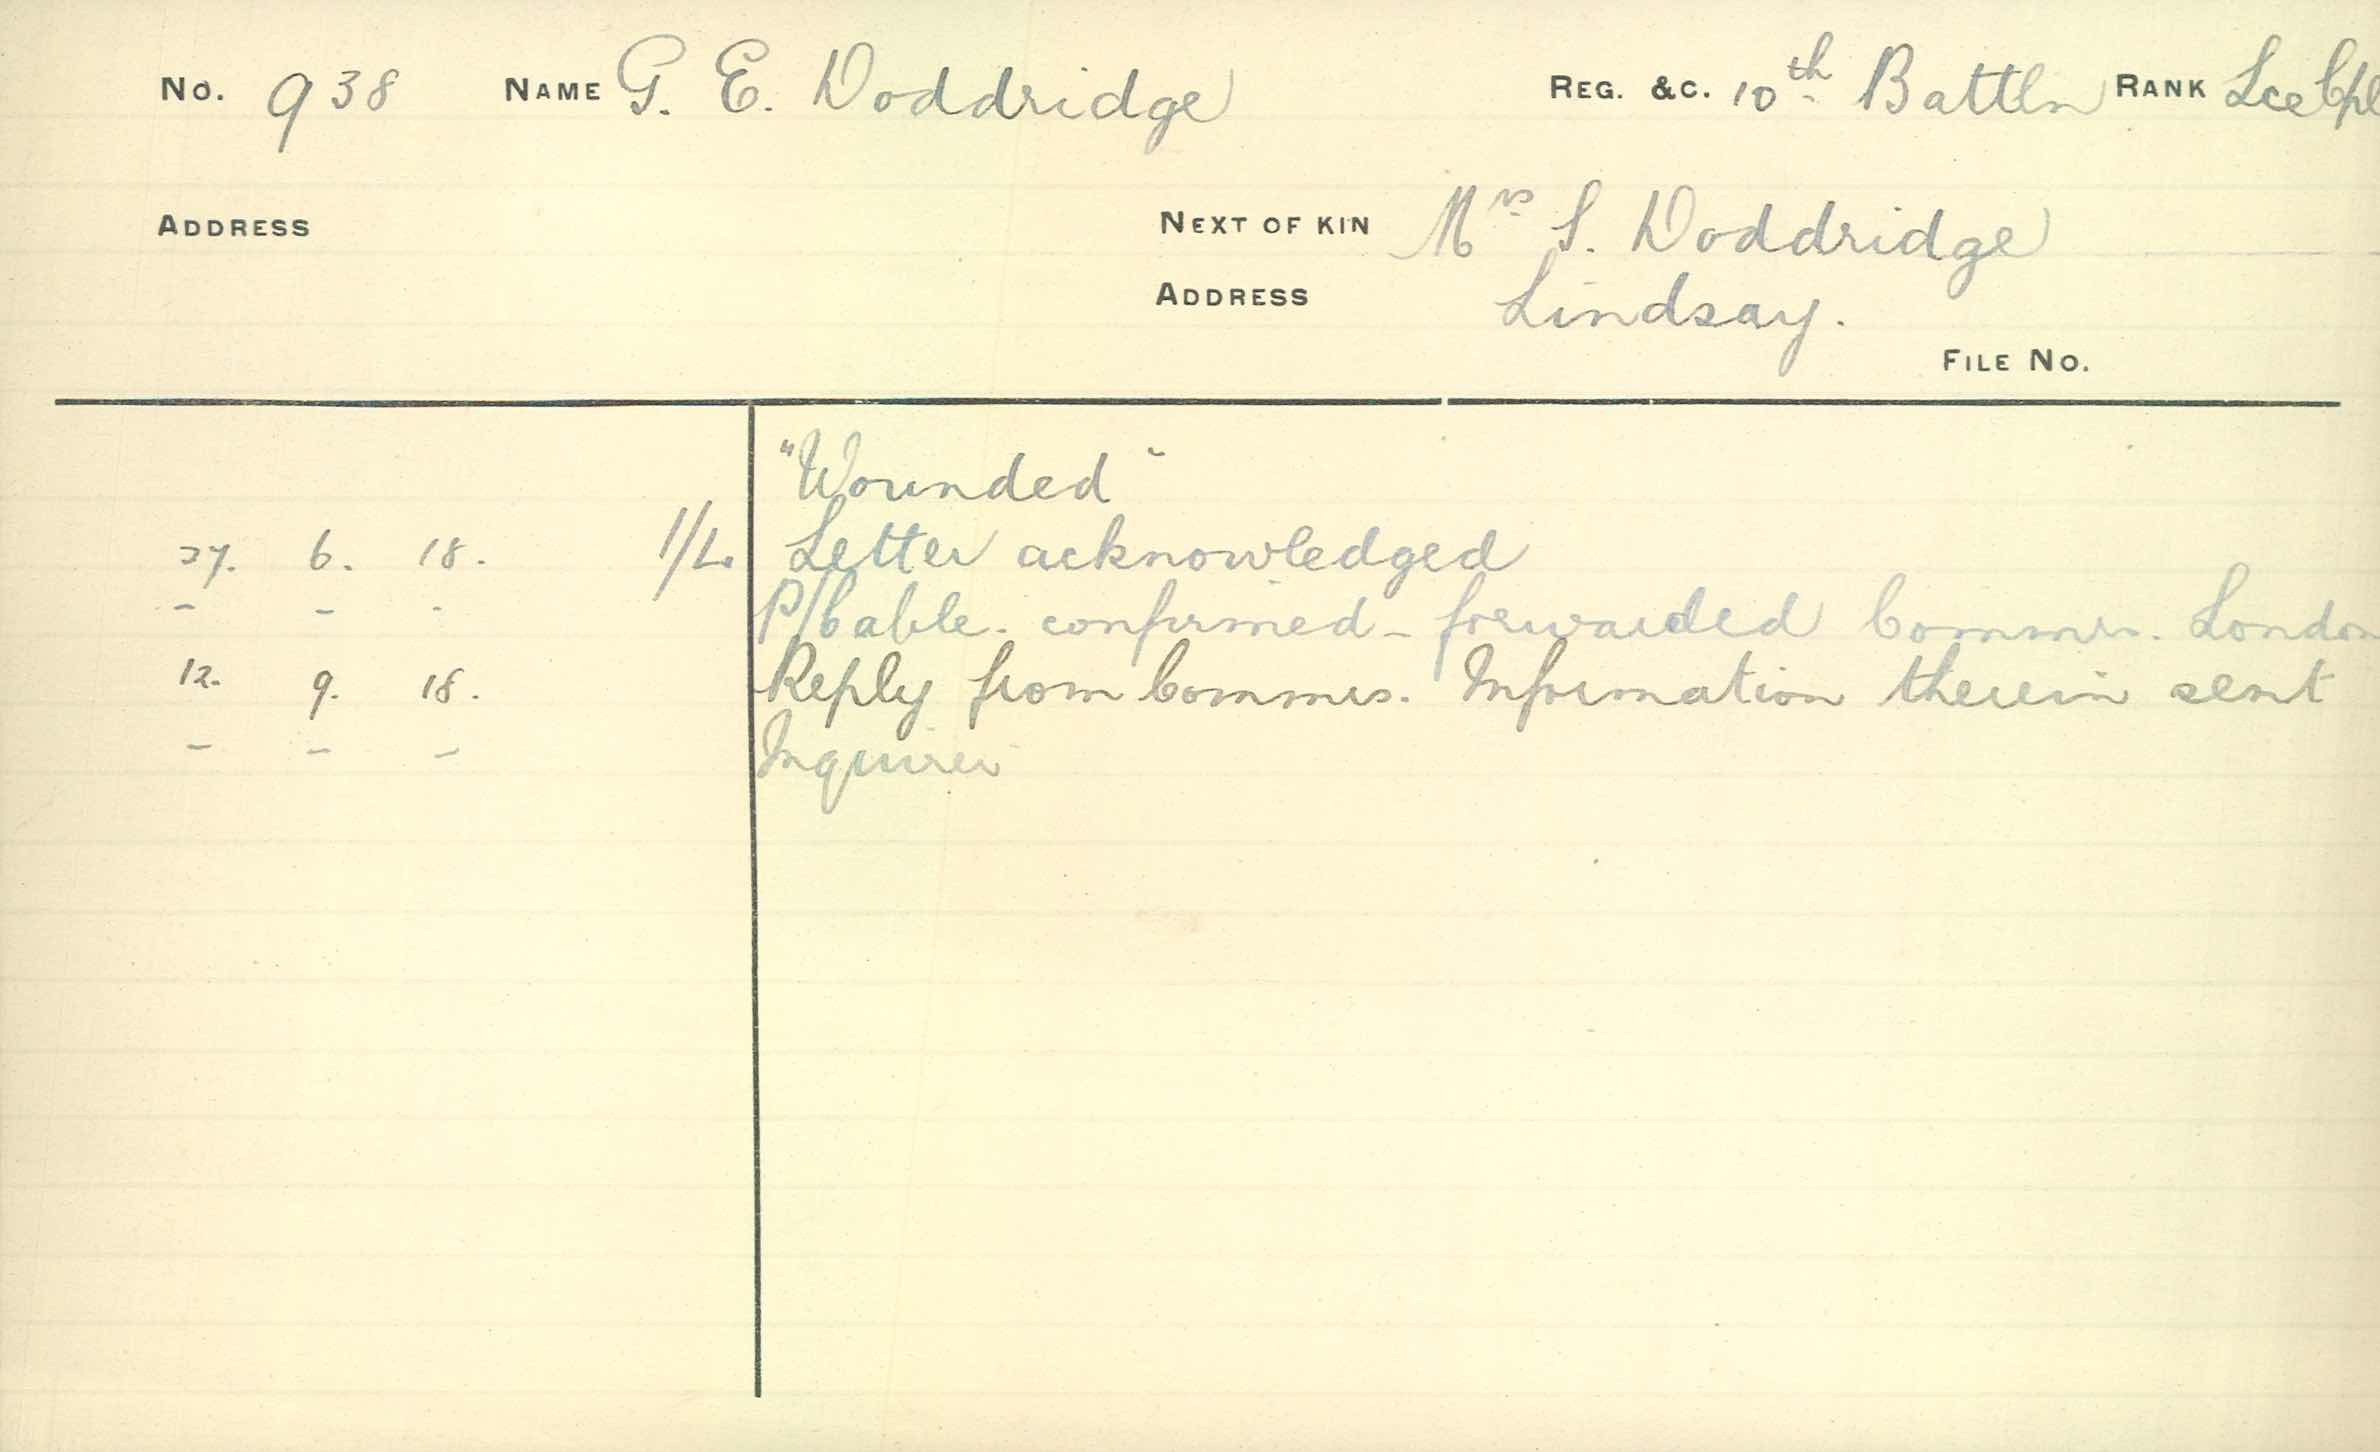 No. 938 NAME G. E. Doddridge REG. &C. 10th Battln RANK Lce Cpl
ADDRESS NEXT OF KIN Mrs S. Doddridge
ADDRESS Lindsay.
FILE No.
"Wounded"
27. 6. 18. 1/L. Letter acknowledged
- - - P/Cable. confirmed - forwarded Commrs. London
12. 9. 18. Reply from Commrs. Information therein sent
- - - Inquirer